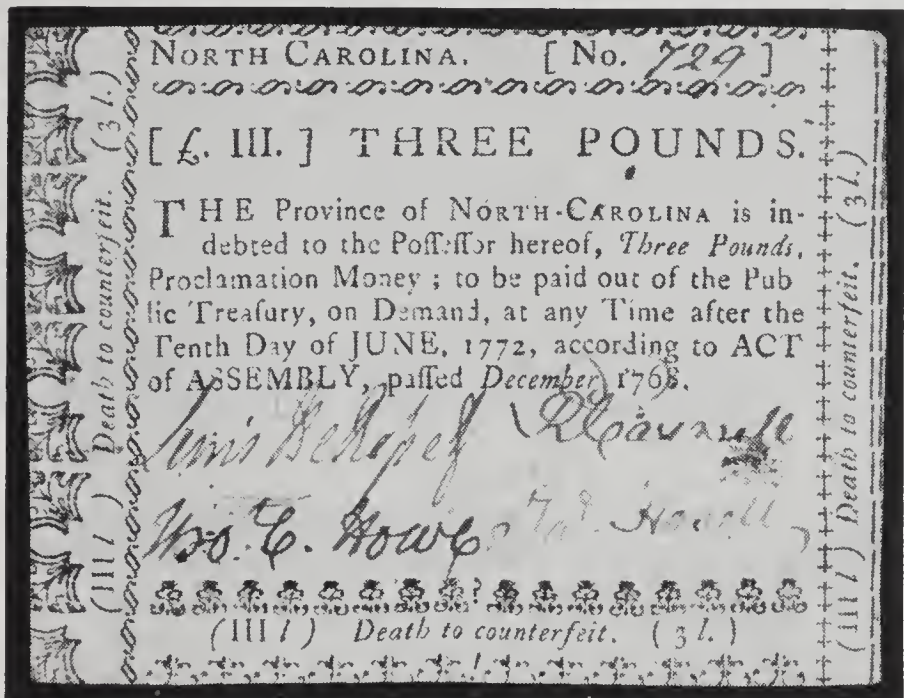 NORTH CAROLINA. [ No. 729 ]
[ £. III. ] THREE POUNDS.
THE Province of NORTH-CAROLINA is in-
debted to the Poſſeſſor hereof, Three Pounds,
Proclamation Money ; to be paid out of the Pub
lic Treaſury, on Demand, at any Time after the
Tenth Day of JUNE, 1772, according to ACT
of ASSEMBLY, paſſed December, 1768.
Lewis
Howe Howell
(III l ) Death to counterfeit. ( 3 l. )
(III l ) Death to counterfeit. (3 l.)
(III l ) Death to counterfeit. (3 l.)